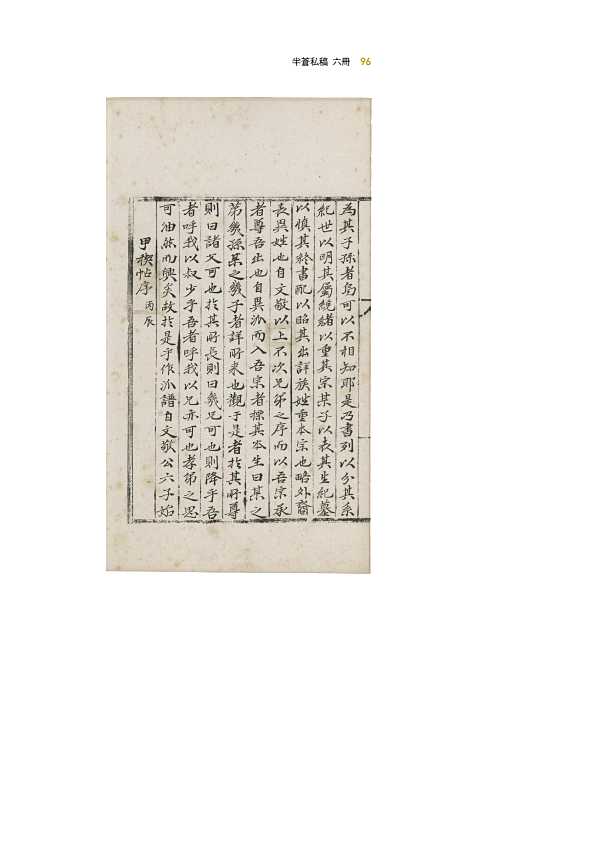 半蒼私稿 六冊 96
為其子孫者烏可以不相知耶是乃書列以分其系
紀世以明其屬統緒以重其宗某子以表其生紀墓
以慎其終書配以昭其出詳族姓重本宗也略外裔
表異姓也自文敬以上不次兄弟之序而以吾宗承
者尊吾出也自異派而入吾宗者標其本生曰某之
第幾孫某之幾子者詳所来也觀于是者於其所尊
則曰諸父可也於其所長則曰幾兄可也則降乎吾
者呼我以叔少乎吾者呼我以兄亦可也孝弟之思
可油然而興矣故於是乎作派譜自文敬公六子始
甲稧帖序 丙辰